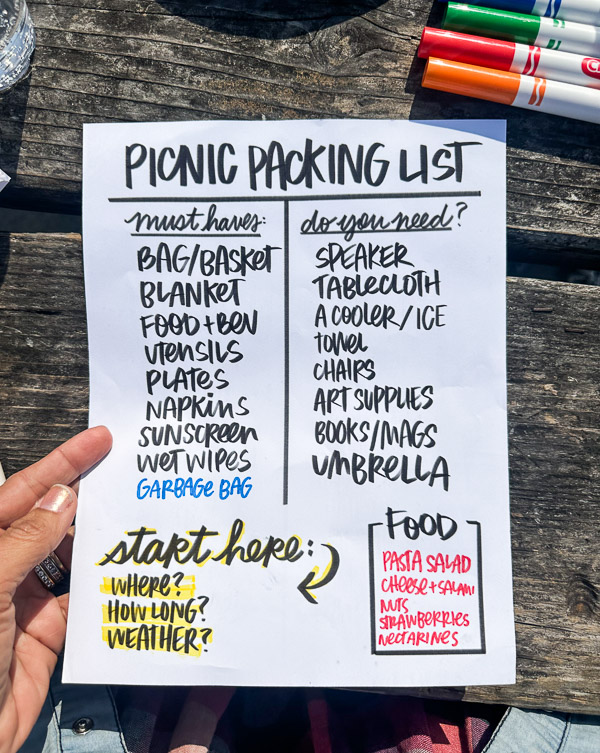 PICNIC PACKING LIST
must haves:
BAG/BASKET
BLANKET
FOOD + BEV
UTENSILS
PLATES
NAPKINS
SUNSCREEN
WET WIPES
GARBAGE BAG
do you need?
SPEAKER
TABLECLOTH
A COOLER/ICE
TOWEL
CHAIRS
ART SUPPLIES
BOOKS/MAGS
UMBRELLA
start here:
WHERE?
HOW LONG?
WEATHER?
FOOD
PASTA SALAD
CHEESE + SALAMI
NUTS
STRAWBERRIES
NECTARINES